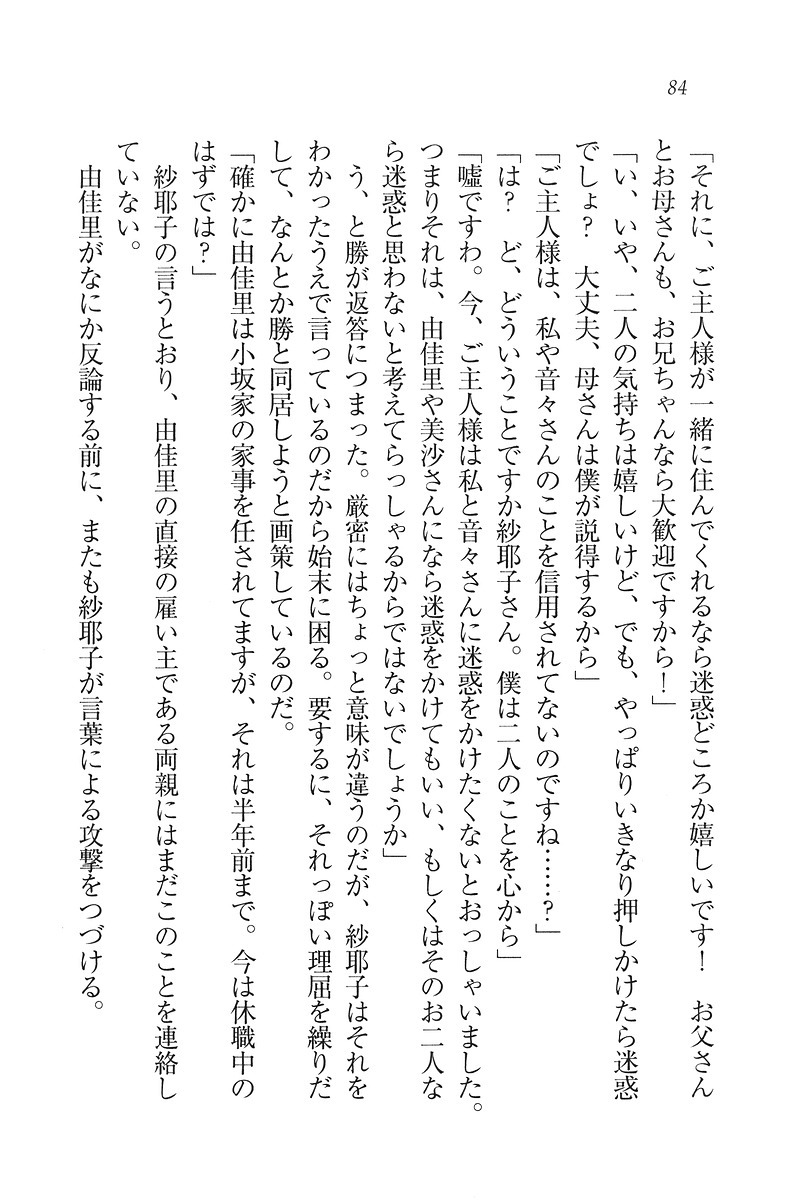 84
「それに、ご主人様が一緒に住んでくれるなら迷惑どころか嬉しいです！　お父さん
とお母さんも、お兄ちゃんなら大歓迎ですから！」
「い、いや、二人の気持ちは嬉しいけど、でも、やっぱりいきなり押しかけたら迷惑
でしょ？　大丈夫、母さんは僕が説得するから」
「ご主人様は、私や音々さんのことを信用されてないのですね……？」
「は？　ど、どういうことですか紗耶子さん。僕は二人のことを心から」
「嘘ですわ。今、ご主人様は私と音々さんに迷惑をかけたくないとおっしゃいました。
つまりそれは、由佳里や美沙さんになら迷惑をかけてもいい、もしくはそのお二人な
ら迷惑と思わないと考えてらっしゃるからではないでしょうか」
　う、と勝が返答につまった。厳密にはちょっと意味が違うのだが、紗耶子はそれを
わかったうえで言っているのだから始末に困る。要するに、それっぽい理屈を繰りだ
して、なんとか勝と同居しようと画策しているのだ。
「確かに由佳里は小坂家の家事を任されてますが、それは半年前まで。今は休職中の
はずでは？」
　紗耶子の言うとおり、由佳里の直接の雇い主である両親にはまだこのことを連絡し
ていない。
　由佳里がなにか反論する前に、またも紗耶子が言葉による攻撃をつづける。